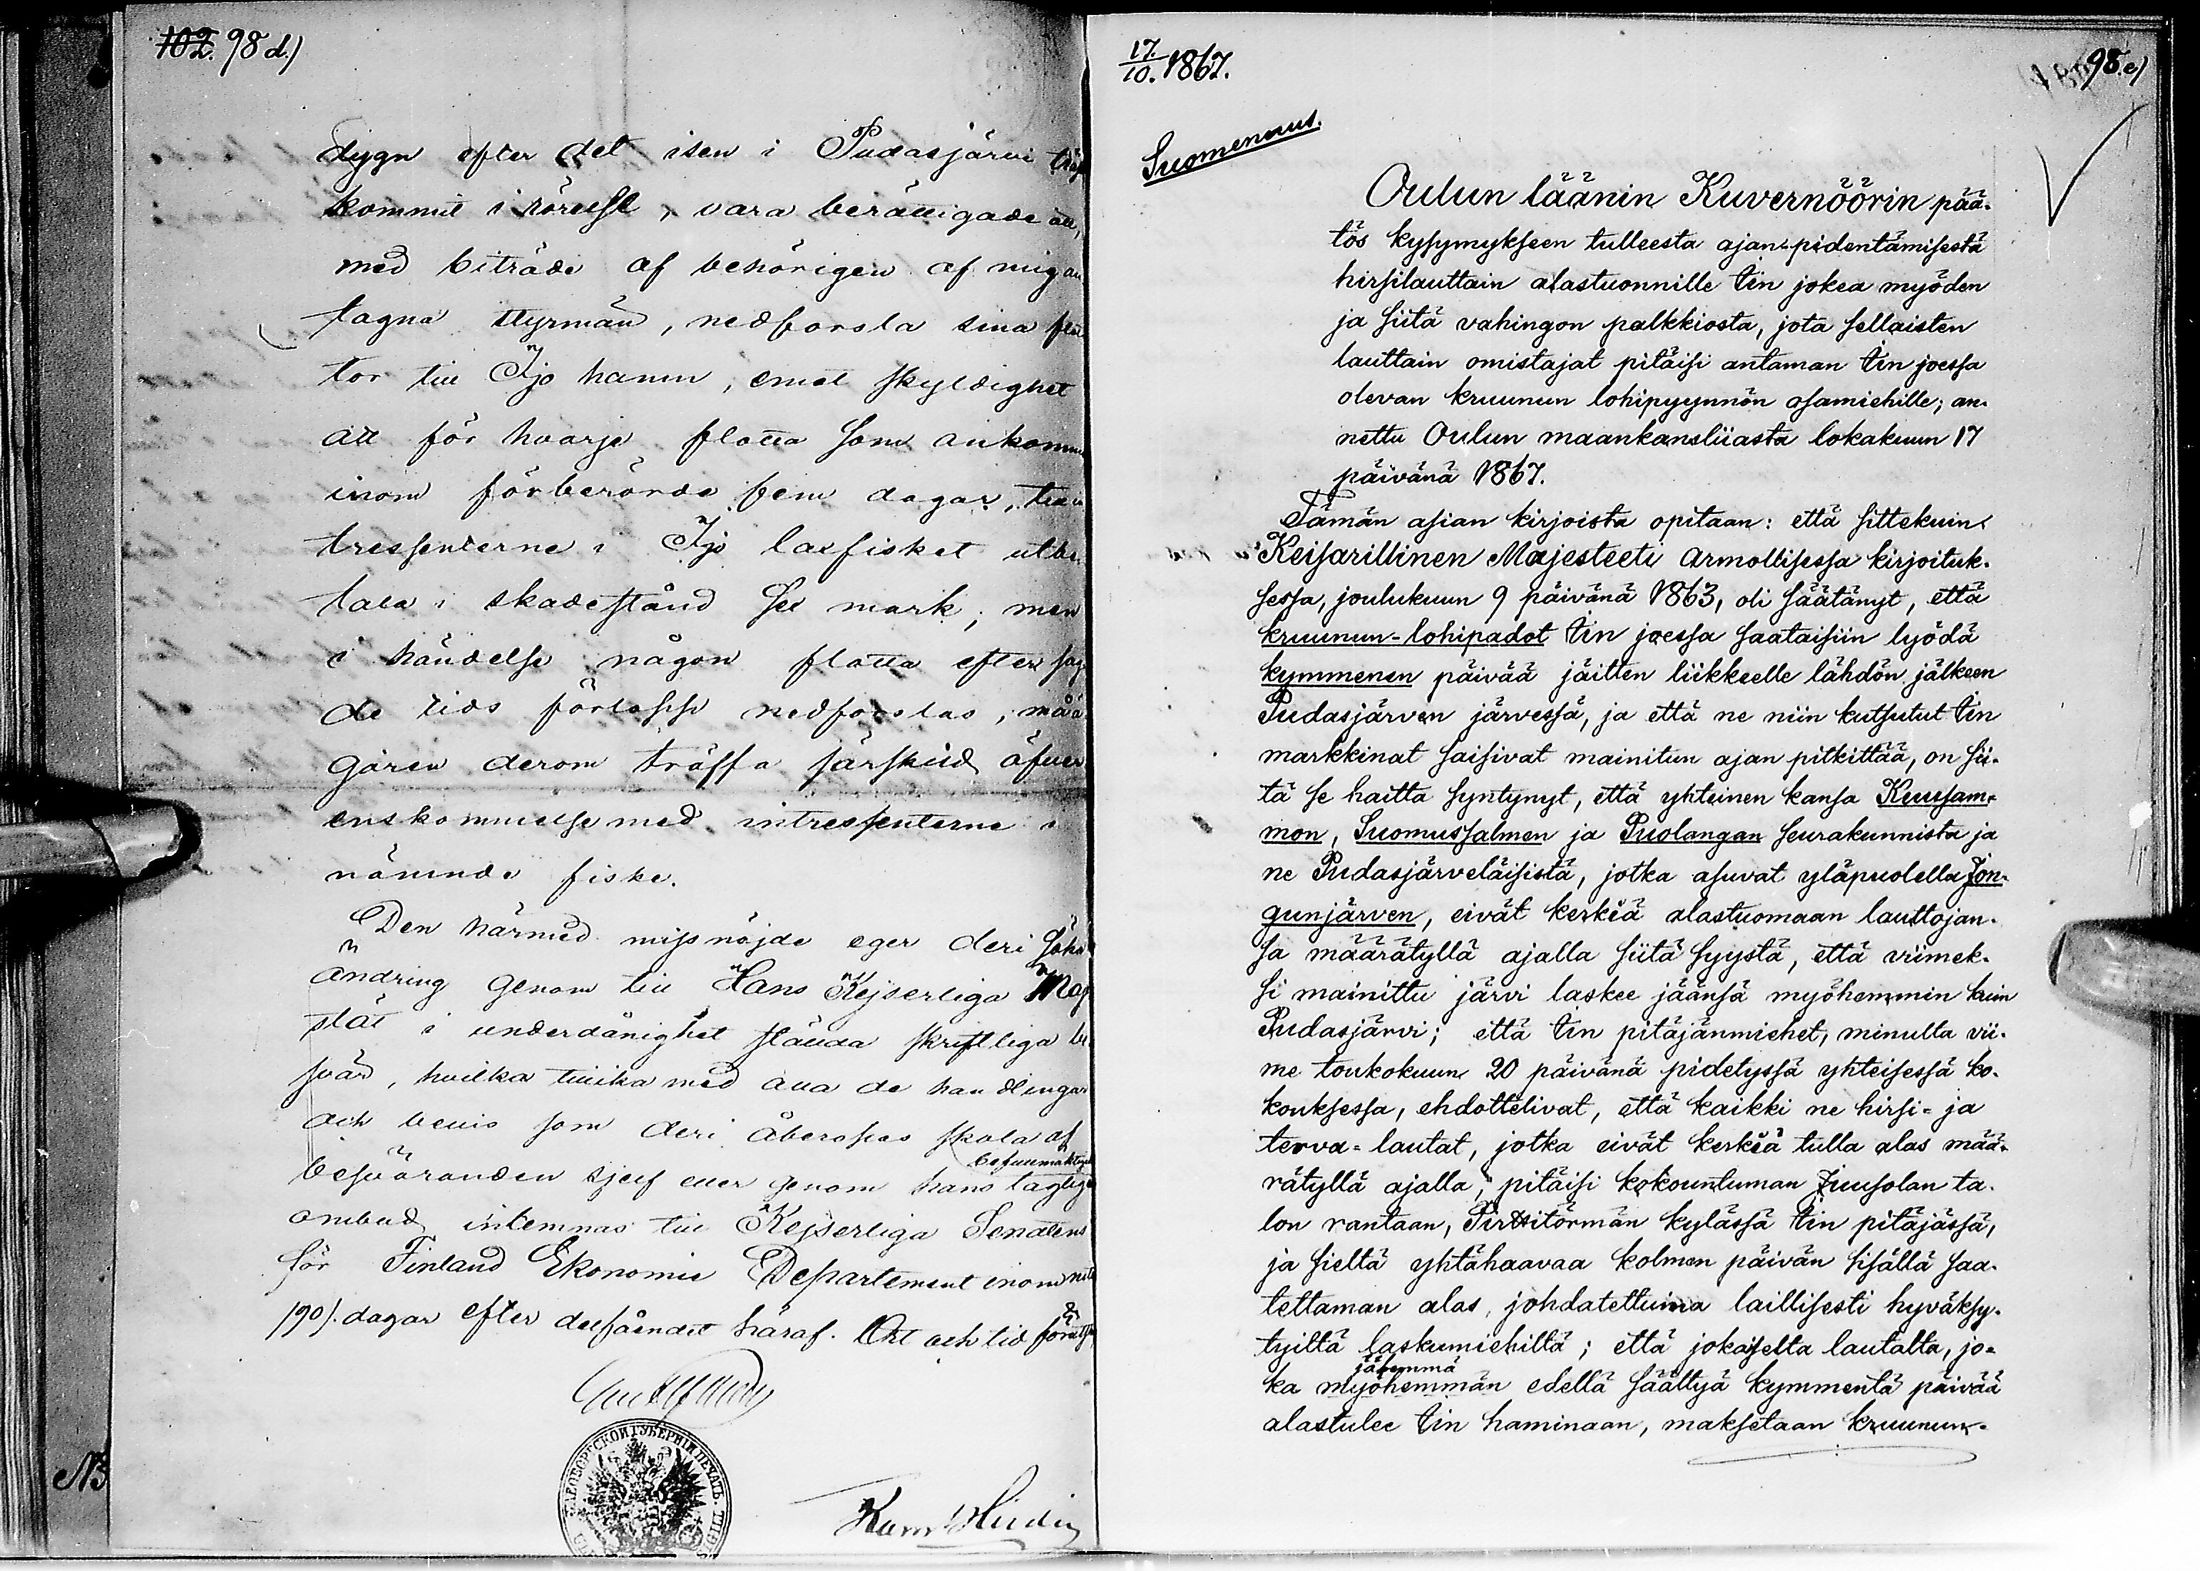 102. 98 d.)
dygn efter det isen i Pudasjärvi
kommit i rörelse, vara berättigade att,
med biträde af behörigen af mig an
tagna styrmän, nedforsla sina flot
tor till Ijo hamn, emot skyldighet
att för hvarje flotta som ankommer
inom förberörde fem dagar, till in
tressenterne i Ijo laxfisket utbe
tala i skadestånd sex mark; men
i händelse någon flotta efter sag
de tids förlopp nedforslas, må ä
garen derom träffa särskild öfver
enskommelse med intressenterne i
nämnde fiske.
Den härmed missnöjde eger deri söka
ändring genom till Hans Kejserliga Maj
stät i underdånighet stälda skriftliga be
svär, hvilka tillika med alla de handlingar
och bevis som deri åberopas skola af
besväranden sjelf eller genom hans lagliga
befullmäktigade
ombud inlemnas till Kejserliga Senatens
för Finland Ekonomie Departement inom
/90/. dagar efter delfåendet häraf. Ort och tid
N3
17./10. 1867.
98.e)
Suomennus.
Oulun läänin Kuvernöörin pää-
tös kysymykseen tulleesta ajan-pidentämisestä
hirsilauttain alastuonnille Iin jokea myöden
ja siitä vahingon palkkiosta, jota sellaisten
lauttain omistajat pitäisi antaman Iin joessa
olevan kruunun lohipyynnön osamiehille; an-
nettu Oulun maankansliiasta lokakuun 17
päivänä 1867.
Tämän asian kirjoista opitaan: että sittekuin
Keisarillinen Majesteeti armollisessa kirjoituk-
sessa, joulukuun 9 päivänä 1863, oli säätänyt, että
kruunun-lohipadot Iin joessa saataisiin lyödä
kymmenen päivää jäitten liikkeelle lähdön jälkeen
Pudasjärven järvessä, ja että ne niin kutsutut Iin
markkinat saisivat mainitun ajan pitkittää, on sii-
tä se haitta syntynyt, että yhteinen kansa Kuusam-
mon, Suomussalmen ja Puolangan seurakunnista ja
ne Pudasjärveläisistä, jotka asuvat yläpuolella Jon-
gunjärven, eivät kerkiä alastuomaan lauttojan-
sa määrätyllä ajalla siitä syystä, että viimek-
si mainittu järvi laskee jäänsä myöhemmin kuin
Pudasjärvi; että Iin pitäjänmiehet, minulta vii-
me toukokuun 20 päivänä pidetyssä yhteisessä ko-
kouksessa, ehdottelivat, että kaikki ne hirsi- ja
terva-lautat, jotka eivät kerkiä tulla alas mää-
rätyllä ajalla, pitäisi kokountuman Juusolan ta-
lon rantaan, Pirttitörmän kylässä Iin pitäjässä,
ja sieltä yhtähaavaa kolmen päivän sisällä saa-
tettaman alas, johdatettuina laillisesti hyväksy-
tyiltä laskumiehiltä; että jokaiselta lautalta, jo-
jälemmä
ka myöhemmän edellä säättyä kymmentä päivää
alastulee Iin haminaan, maksetaan kruunun-